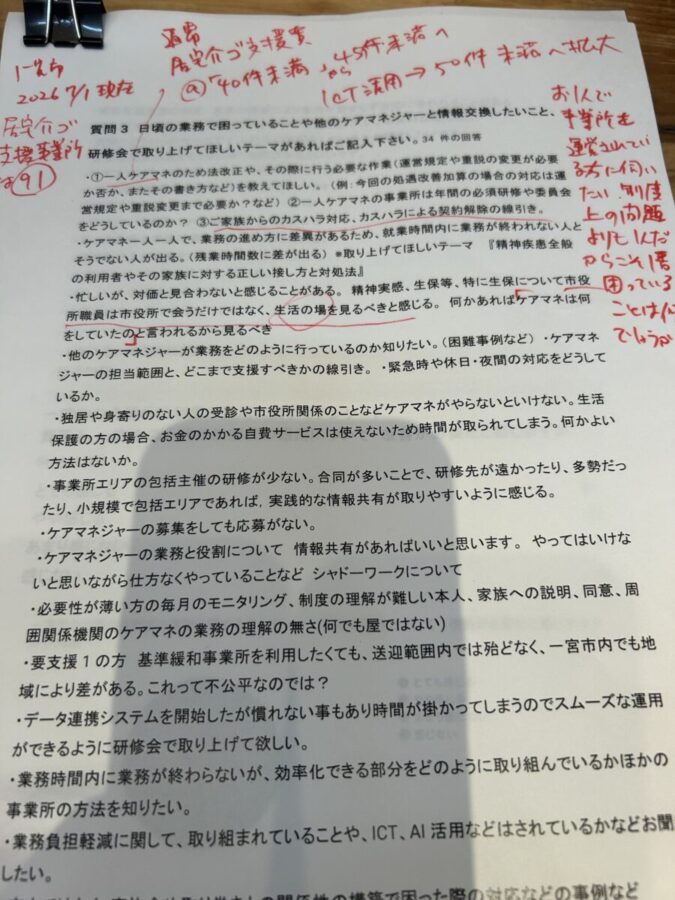 一宮市
2026 7/1 現在
居宅介ゴ
支援事業所
91
通常
居宅介ゴ支援費
@「40件未満」から45件未満へ
ICT活用→50件 未満へ拡大
お1人で
事業所を
運営されてい
る方に伺い
たい 制度
上の問題
よりも1人だ
からこそ1番
困っている
ことは何
でしょうか
質問3 日頃の業務で困っていることや他のケアマネジャーと情報交換したいこと、
研修会で取り上げてほしいテーマがあればご記入下さい。34 件の回答
・①一人ケアマネのため法改正や、その際に行う必要な作業(運営規定や重説の変更が必要
か否か、またその書き方など)を教えてほしい。(例:今回の処遇改善加算の場合の対応は運
営規定や重説変更まで必要か?など) ②一人ケアマネの事業所は年間の必須研修や委員会
をどうしているのか? ③ご家族からのカスハラ対応、カスハラによる契約解除の線引き。
・ケアマネー人一人で、業務の進め方に差異があるため、就業時間内に業務が終われない人と
そうでない人が出る。(残業時間数に差が出る) *取り上げてほしいテーマ 『精神疾患全般
の利用者やその家族に対する正しい接し方と対処法』
・忙しいが、対価と見合わないと感じることがある。 精神実感、生保等、特に生保について市役
所職員は市役所で会うだけではなく、生活の場を見るべきと感じる。 何かあればケアマネは何
をしていたのと言われるから見るべき
・他のケアマネジャーが業務をどのように行っているのか知りたい。(困難事例など) ・ケアマネ
ジャーの担当範囲と、どこまで支援すべきかの線引き。 ・緊急時や休日・夜間の対応をどうして
いるか。
・独居や身寄りのない人の受診や市役所関係のことなどケアマネがやらないといけない。生活
保護の方の場合、お金のかかる自費サービスは使えないため時間が取られてしまう。何かよい
方法はないか。
・事業所エリアの包括主催の研修が少ない。合同が多いことで、研修先が遠かったり、多勢だっ
たり、小規模で包括エリアであれば，実践的な情報共有が取りやすいように感じる。
・ケアマネジャーの募集をしても応募がない。
・ケアマネジャーの業務と役割について 情報共有があればいいと思います。 やってはいけな
いと思いながら仕方なくやっていることなど シャドーワークについて
・必要性が薄い方の毎月のモニタリング、制度の理解が難しい本人、家族への説明、同意、周
囲関係機関のケアマネの業務の理解の無さ(何でも屋ではない)
・要支援1の方 基準緩和事業所を利用したくても、送迎範囲内では殆どなく、一宮市内でも地
域により差がある。これって不公平なのでは?
・データ連携システムを開始したが慣れない事もあり時間が掛かってしまうのでスムーズな運用
ができるように研修会で取り上げて欲しい。
・業務時間内に業務が終わらないが、効率化できる部分をどのように取り組んでいるかほかの
事業所の方法を知りたい。
・業務負担軽減に関して、取り組まれていることや、ICT、AI 活用などはされているかなどお聞
したい。
の関係性の構築で困った際の対応などの事例など